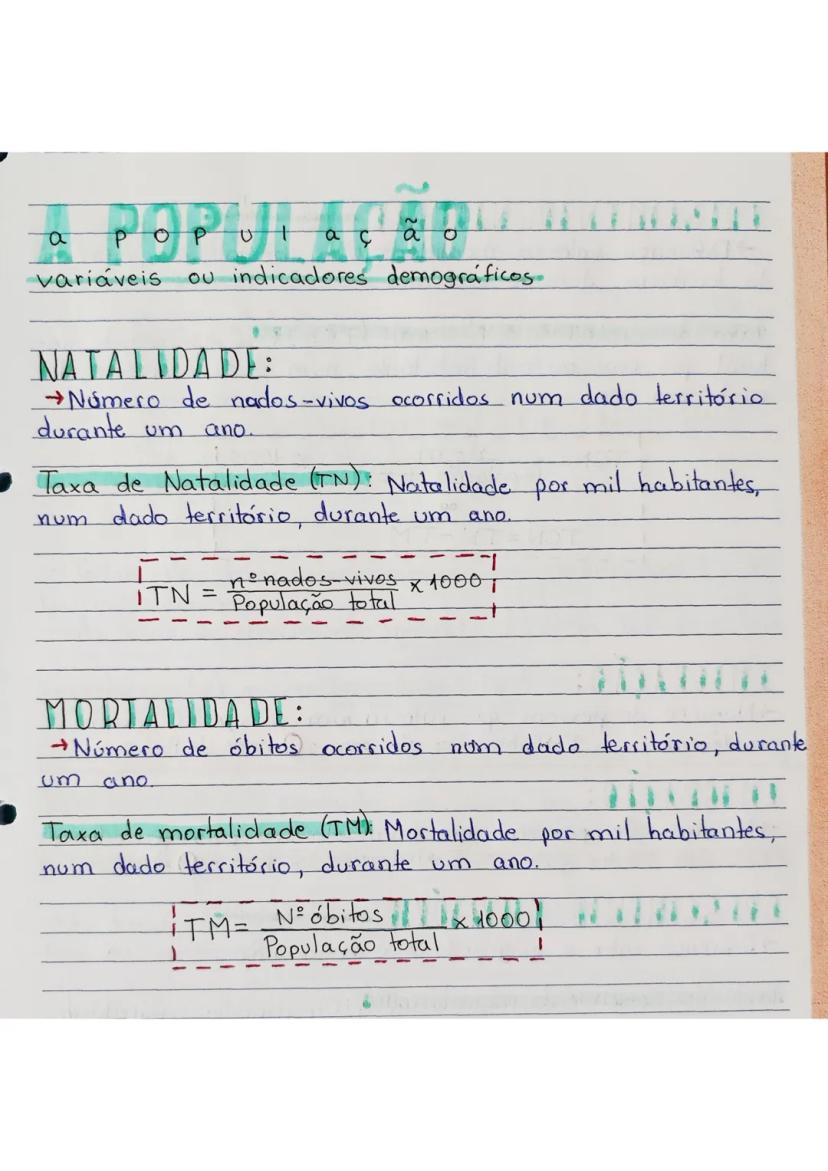 A POPULAÇÃO
a população
variáveis ou indicadores demográficos
NATALIDADE:
→ Número de nados-vivos ocorridos num dado território
durante um ano.
Taxa de Natalidade (TN): Natalidade por mil habitantes,
num dado território, durante um ano.
TN = nº nados-vivos / População total x 1000
MORTALIDADE:
→ Número de óbitos ocorridos num dado território, durante
um ano.
Taxa de mortalidade (TM): Mortalidade por mil habitantes,
num dado território, durante um ano.
TM = Nº óbitos / População total x 1000